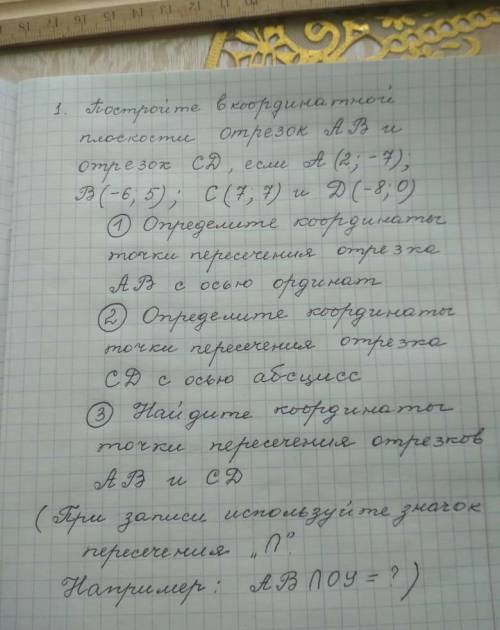 1. Постройте в координатной
плоскости отрезок AB и
отрезок CD, если A(2; -7);
B(-6; 5); C(7; 7) и D(-8; 0)
① Определите координаты
точки пересечения отрезка
AB с осью ординат
② Определите координаты
точки пересечения отрезка
CD с осью абсцисс
③ Найдите координаты
точки пересечения отрезков
AB и CD
(При записи используйте значок
пересечения „∩".
Например: AB ∩ OY = ?)